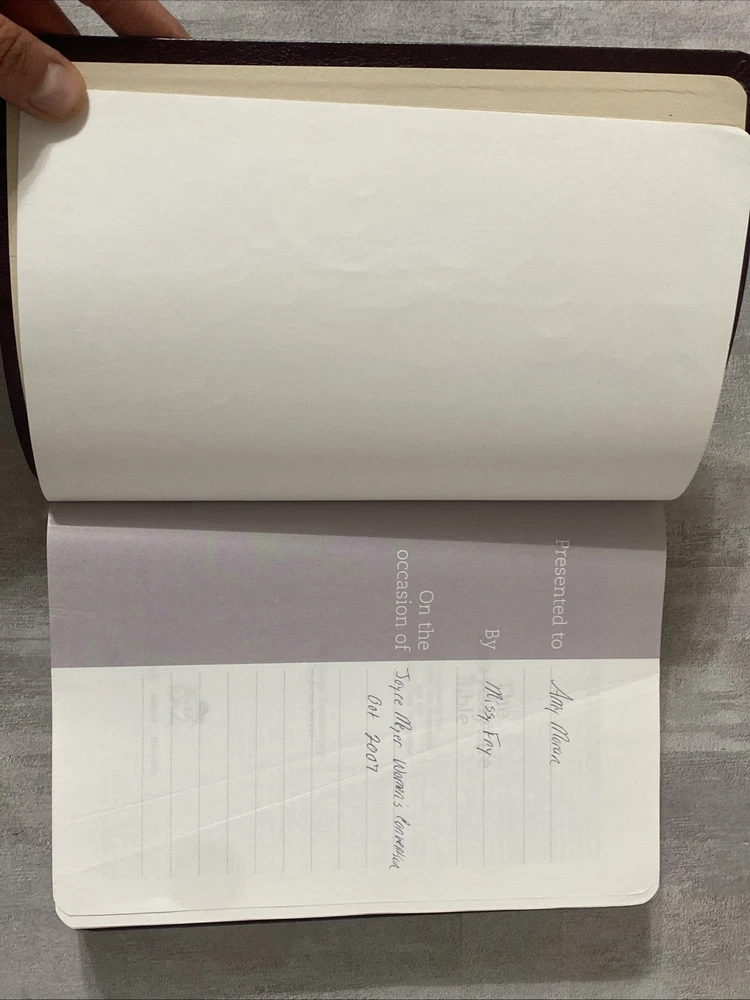 Presented to Amy Moran
By Missy Fry
On the
occasion of Joyce Meyer Women's Conference
Oct 2007